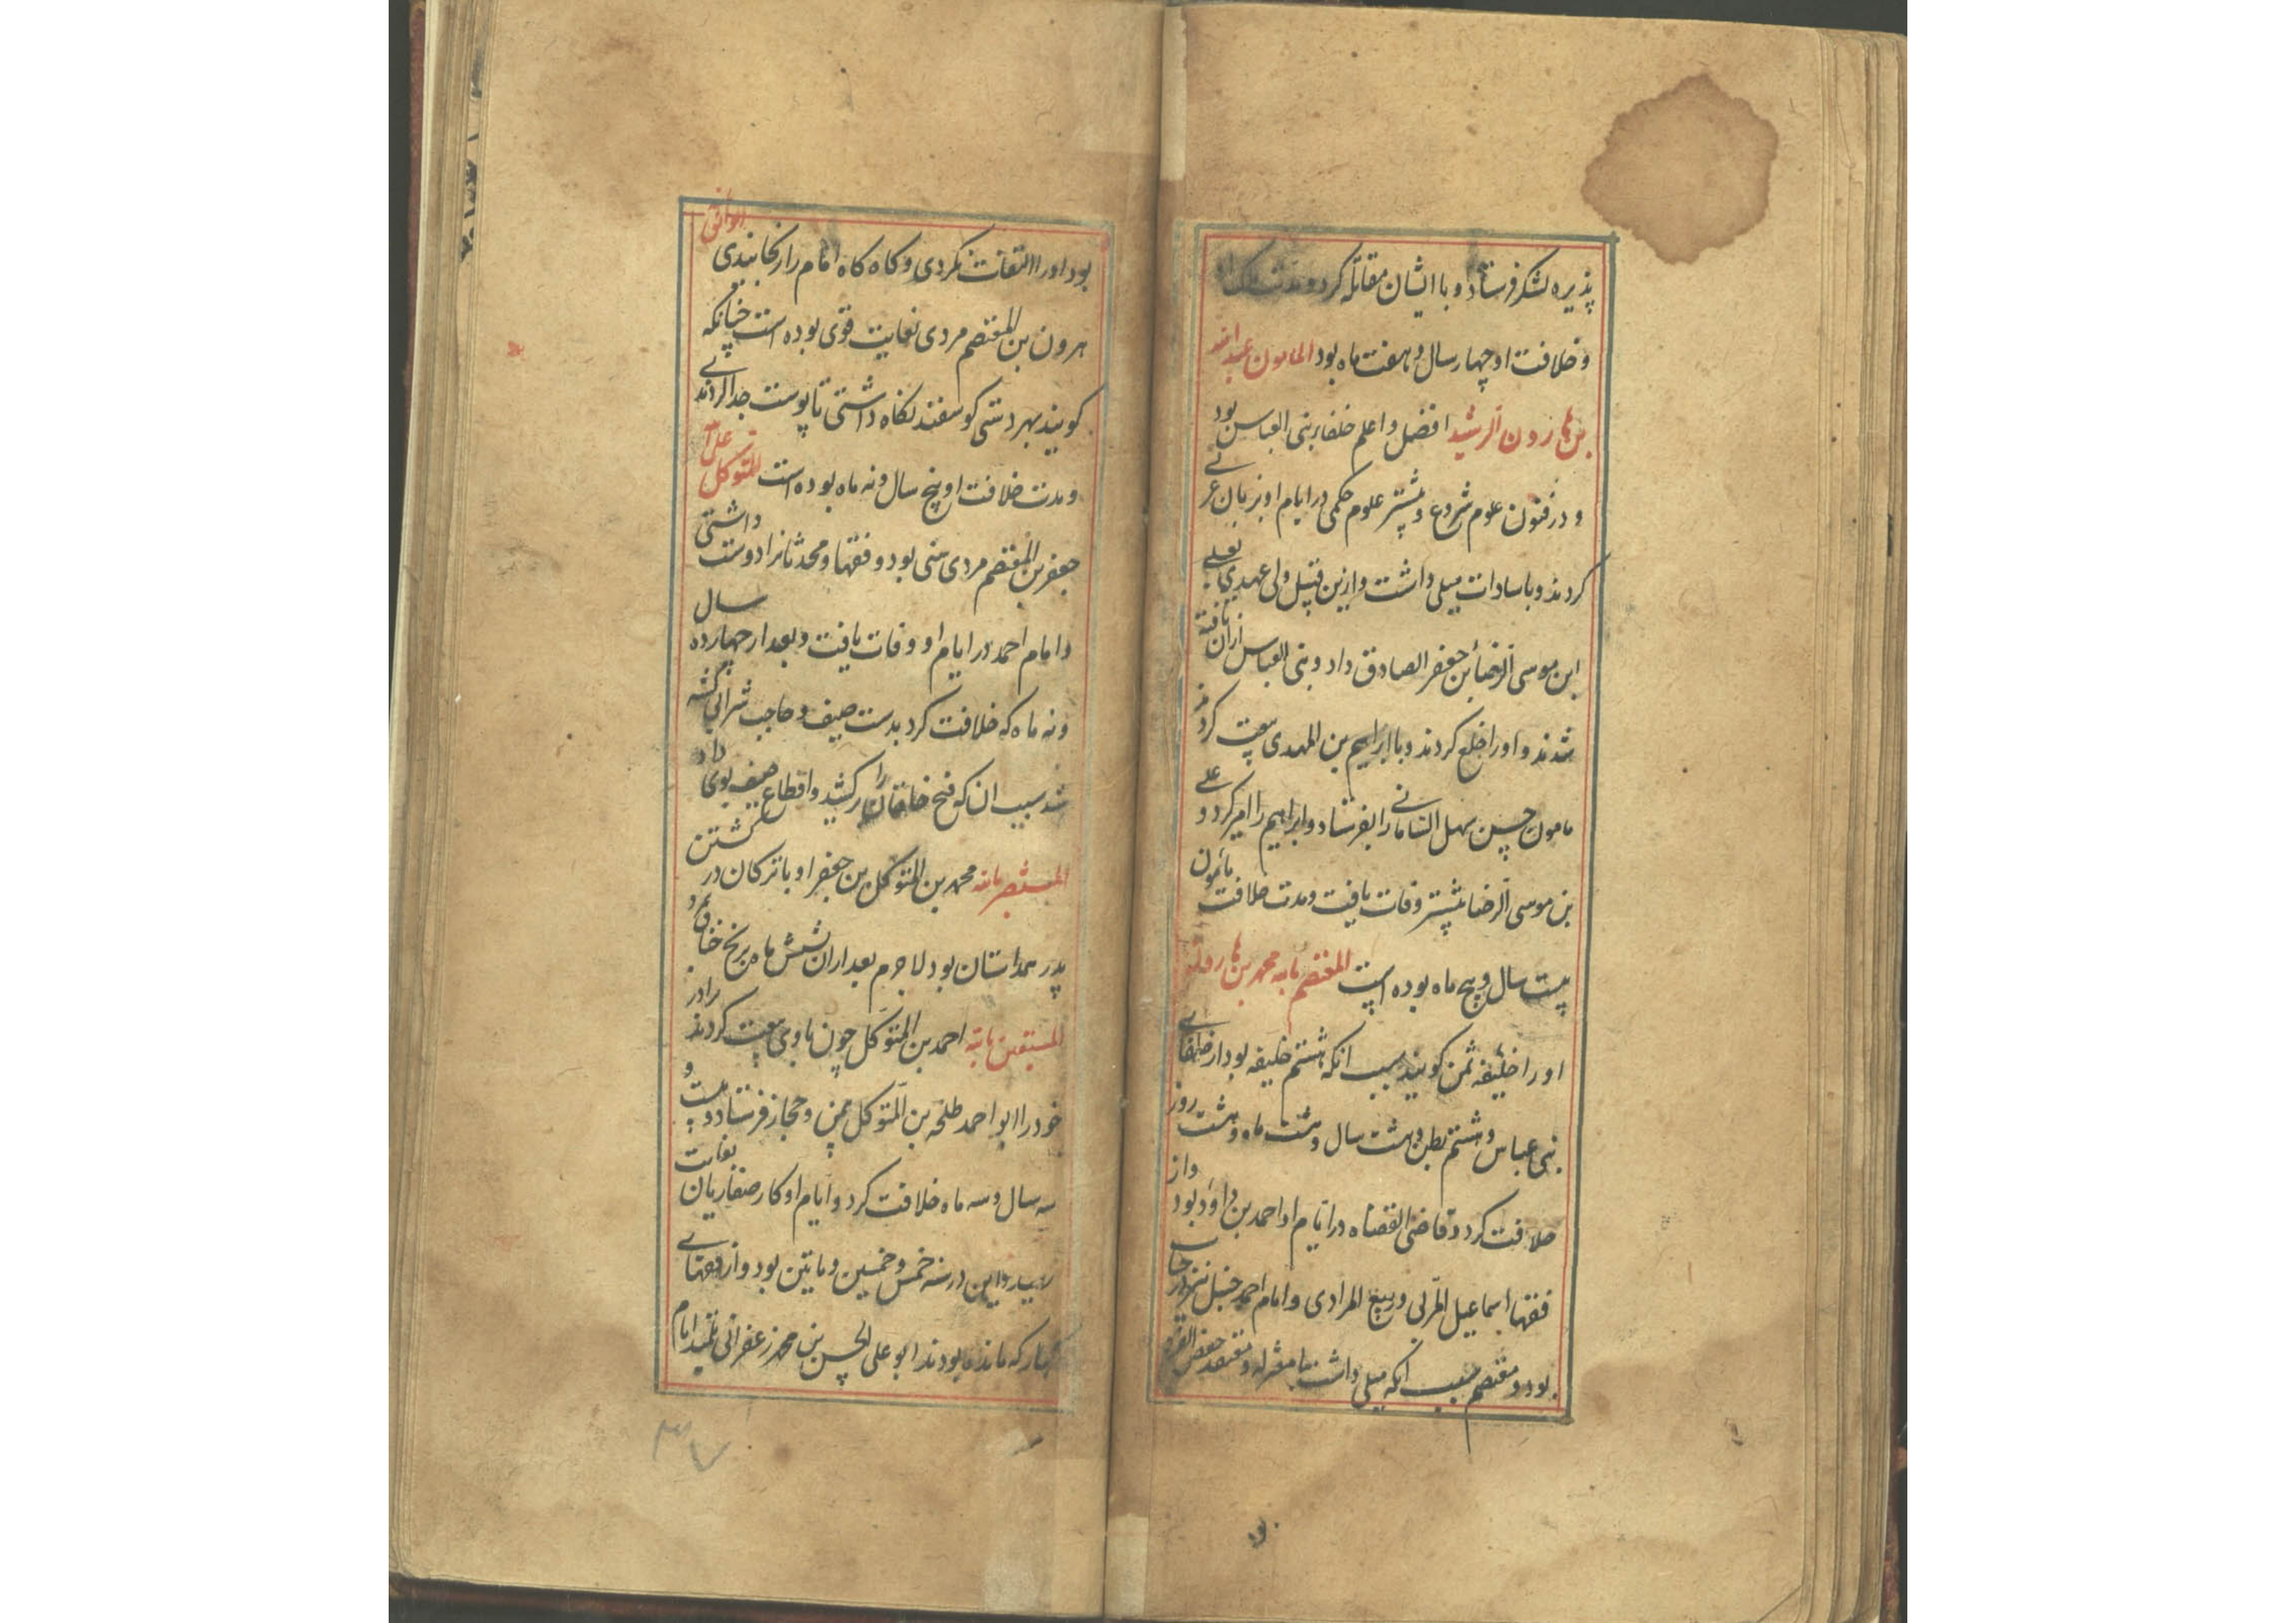 پذیره لشکر فرستاد و با ایشان مقاتله کرد و مدت ملک او
و خلافت او چهار سال و هفت ماه بود المامون عبدالله
بن هارون الرشید افضل و اعلم خلفاء بنی العباس بود
و در فنون علوم شروع و بیشتر علوم حکمی در ایام او بزبان عربی
کردند و با سادات میلی داشت و ازین قبیل ولی عهدی بعلی
ابن موسی الرضا بن جعفر الصادق داد و بنی العباس ازان تافته
شدند و اورا خلع کردند و با ابراهیم بن المهدی بیعت کردند
مامون حسن سهل را بفرستاد و ابراهیم را اسر کرد و علی
بن موسی الرضا بیشتر وفات یافت و مدت خلافت مأمون
بیست سال و پنج ماه بوده است المعتصم بالله محمد بن هارون
اورا خلیفه ثمن کویند بسبب انکه هشتم خلیفه بود از خلفای
بنی عباس و هشتم بطن و هشت سال و هشت ماه و هشت روز
خلافت کرد و قاضی القضاه در ایام او احمد بن داود بود و از
فقها اسماعیل المزنی و ربیع المرادی و امام احمد حنبل نیز در
بود و معتصم بسبب انکه میلی داشت با معتزله و معتقد
بود اورا التفات نکردی و کاه کاه امام را رنجانیدی الواثق
هرون بن المعتصم مردی بغایت قوی بوده است چنانکه
کویند بهر دستی کوسفند نکاه داشتی تا پوست جدا کردندی
و مدت خلافت او پنج سال و نه ماه بوده است المتوکل علی
جعفر بن المعتصم مردی سنی بود و فقها و محدثانرا دوست داشتی
و امام احمد در ایام او وفات یافت و بعد از چهارده سال
و نه ماه که خلافت کرد بدست صیف و حاجب شرابی کشته
شد بسبب ان که فتح خاقان را برکشید و اقطاع صیف بوی داد
المستنصر بالله محمد بن المتوکل بن جعفر او با ترکان در کشتن
پدر همداستان بود لاجرم بعد ازان بشش ماه برنج خناق بمرد
المستعین بالله احمد بن المتوکل چون باوی بیعت کردند برادر
خود را ابو احمد طلحه بن المتوکل بیمن و حجاز فرستاد و بیست و
سه سال و سه ماه خلافت کرد و ایام او کار صفاریان بغایت
رسید و این در سنه خمس و خمسین و مایتین بود و از فقهای
کبار که مانده بودند ابو علی الحسن بن محمد زعفرانی تلمیذ امام
۳۷